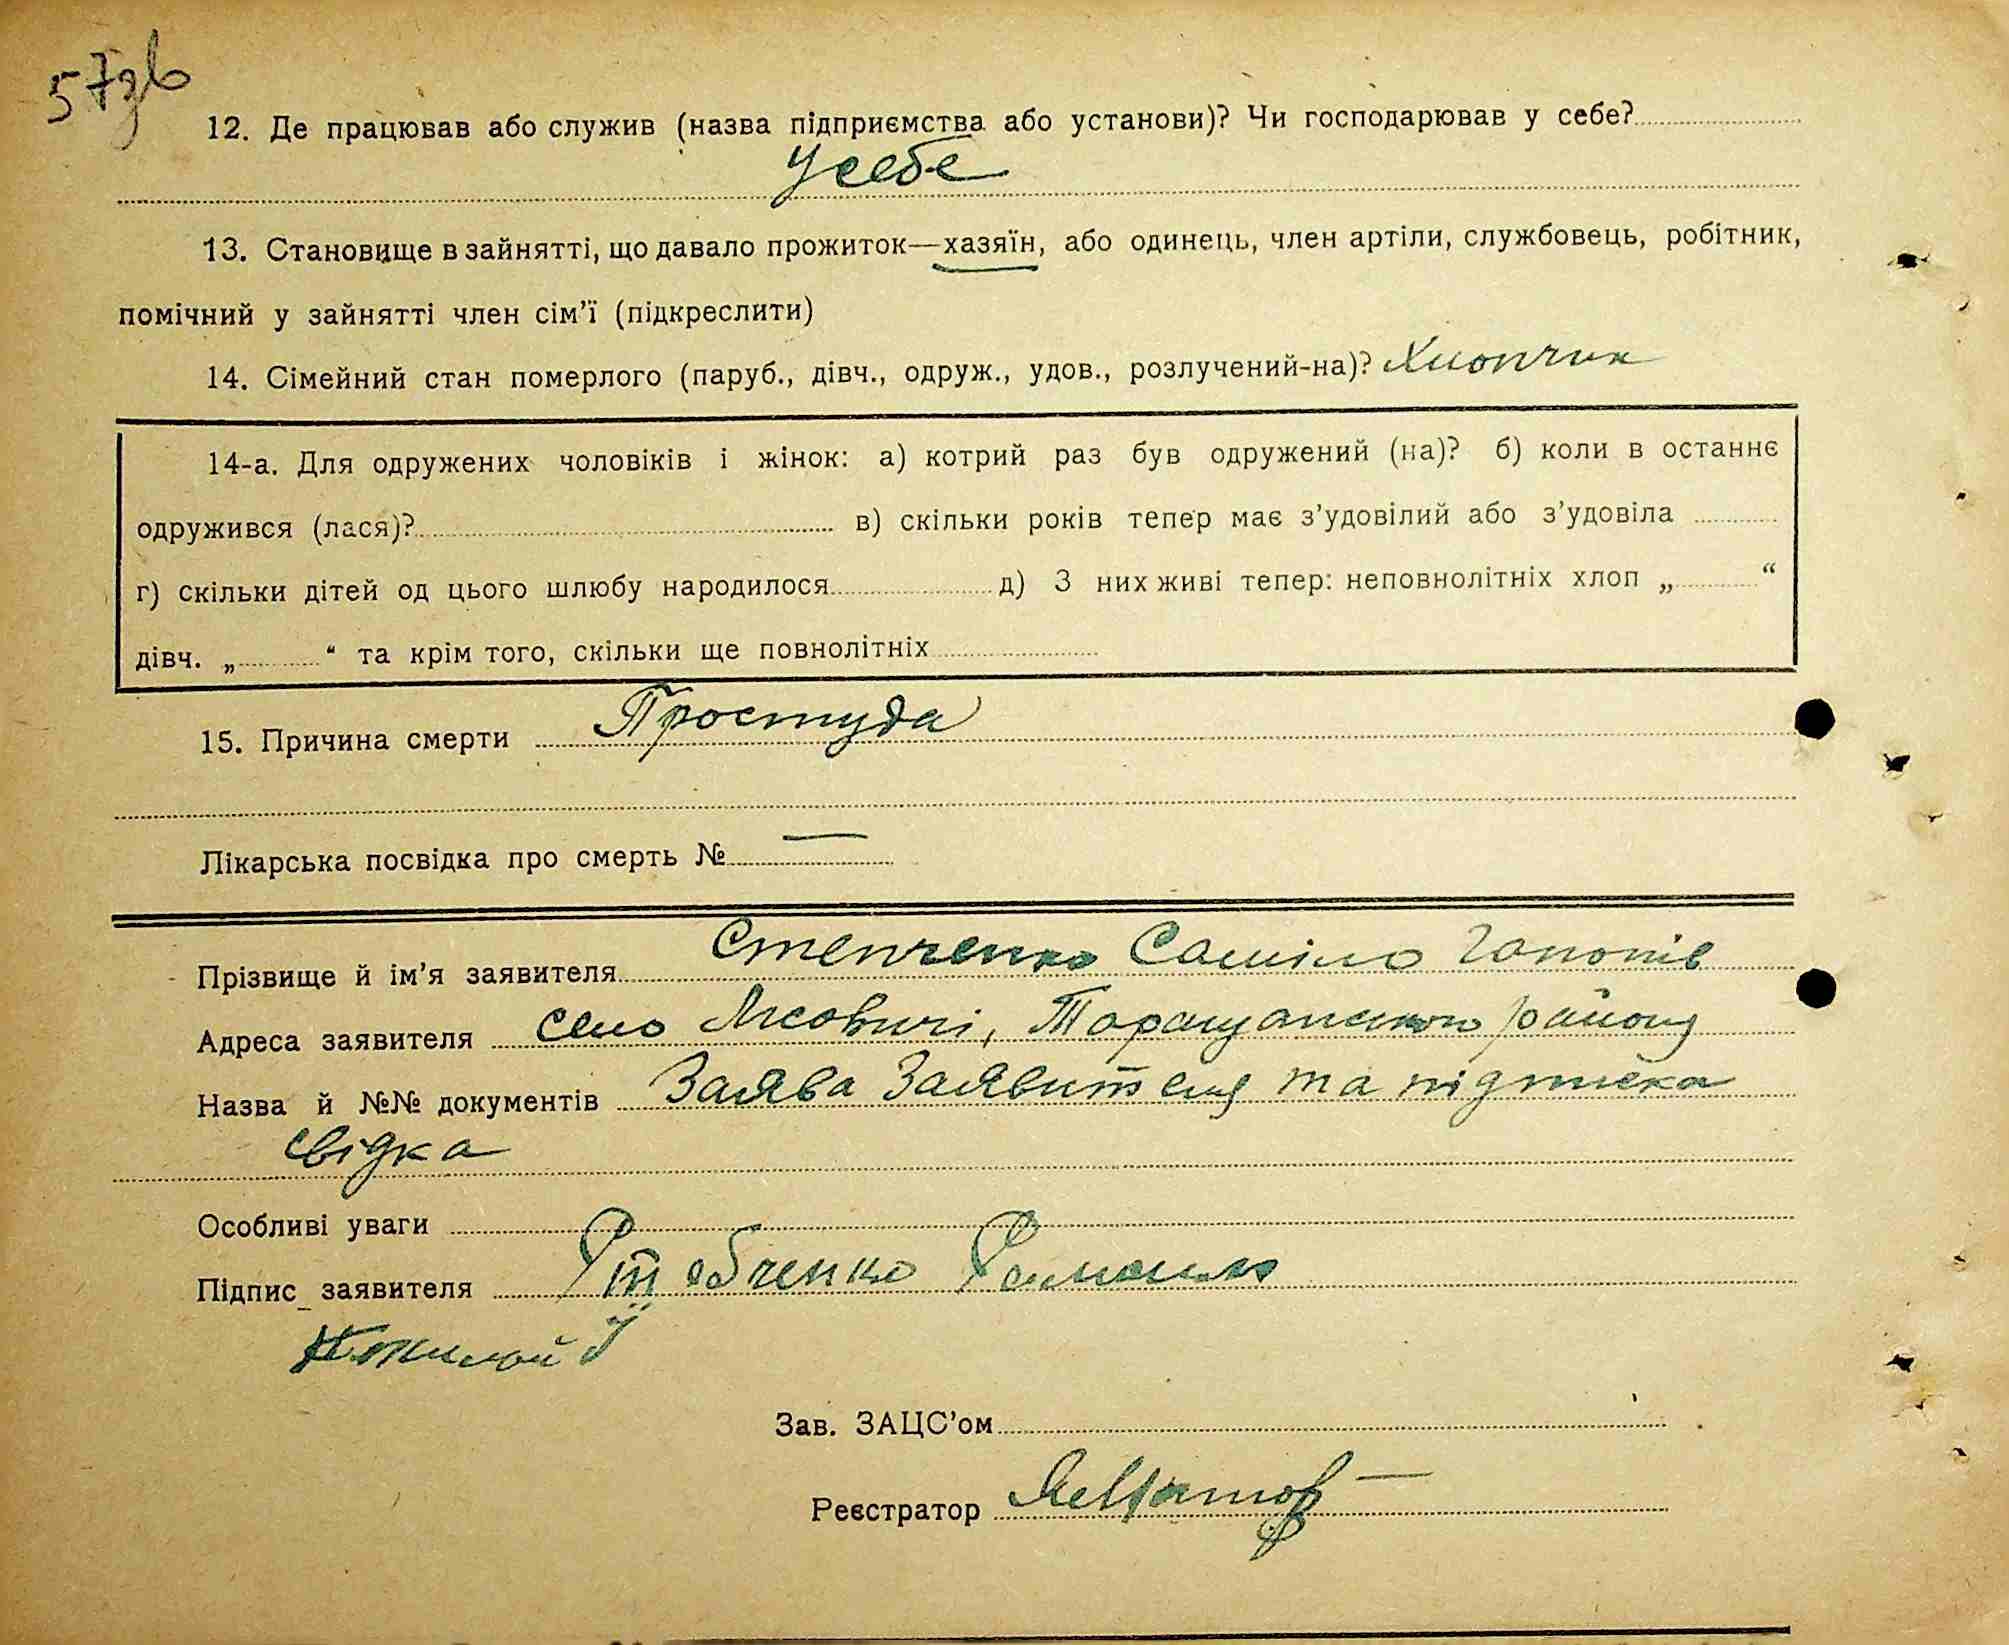 57зв
12. Де працював або служив (назва підприємства або установи)? Чи господарював у себе?
У себе
13. Становище в зайнятті, що давало прожиток—хазяїн, або одинець, член артіли, службовець, робітник,
помічний у зайнятті член сім'ї (підкреслити)
14. Сімейний стан померлого (паруб., дівч., одруж., удов., розлучений-на)? Хлопчик
14-а. Для одружених чоловіків і жінок: а) котрий раз був одружений (на)? б) коли в останнє
одружився (лася)? в) скільки років тепер має з'удовілий або з'удовіла
г) скільки дітей од цього шлюбу народилося д) З них живі тепер: неповнолітніх хлоп „ “
дівч. „ “ та крім того, скільки ще повнолітніх
15. Причина смерти Простуда
Лікарська посвідка про смерть № —
Прізвище й ім'я заявителя Степченко Саміло Гапонів
Адреса заявителя село Лісовичі, Таращанського району
Назва й №№ документів Заява Заявителя та підписка
свідка
Особливі уваги
Підпис заявителя
Зав. ЗАЦС'ом
Реєстратор